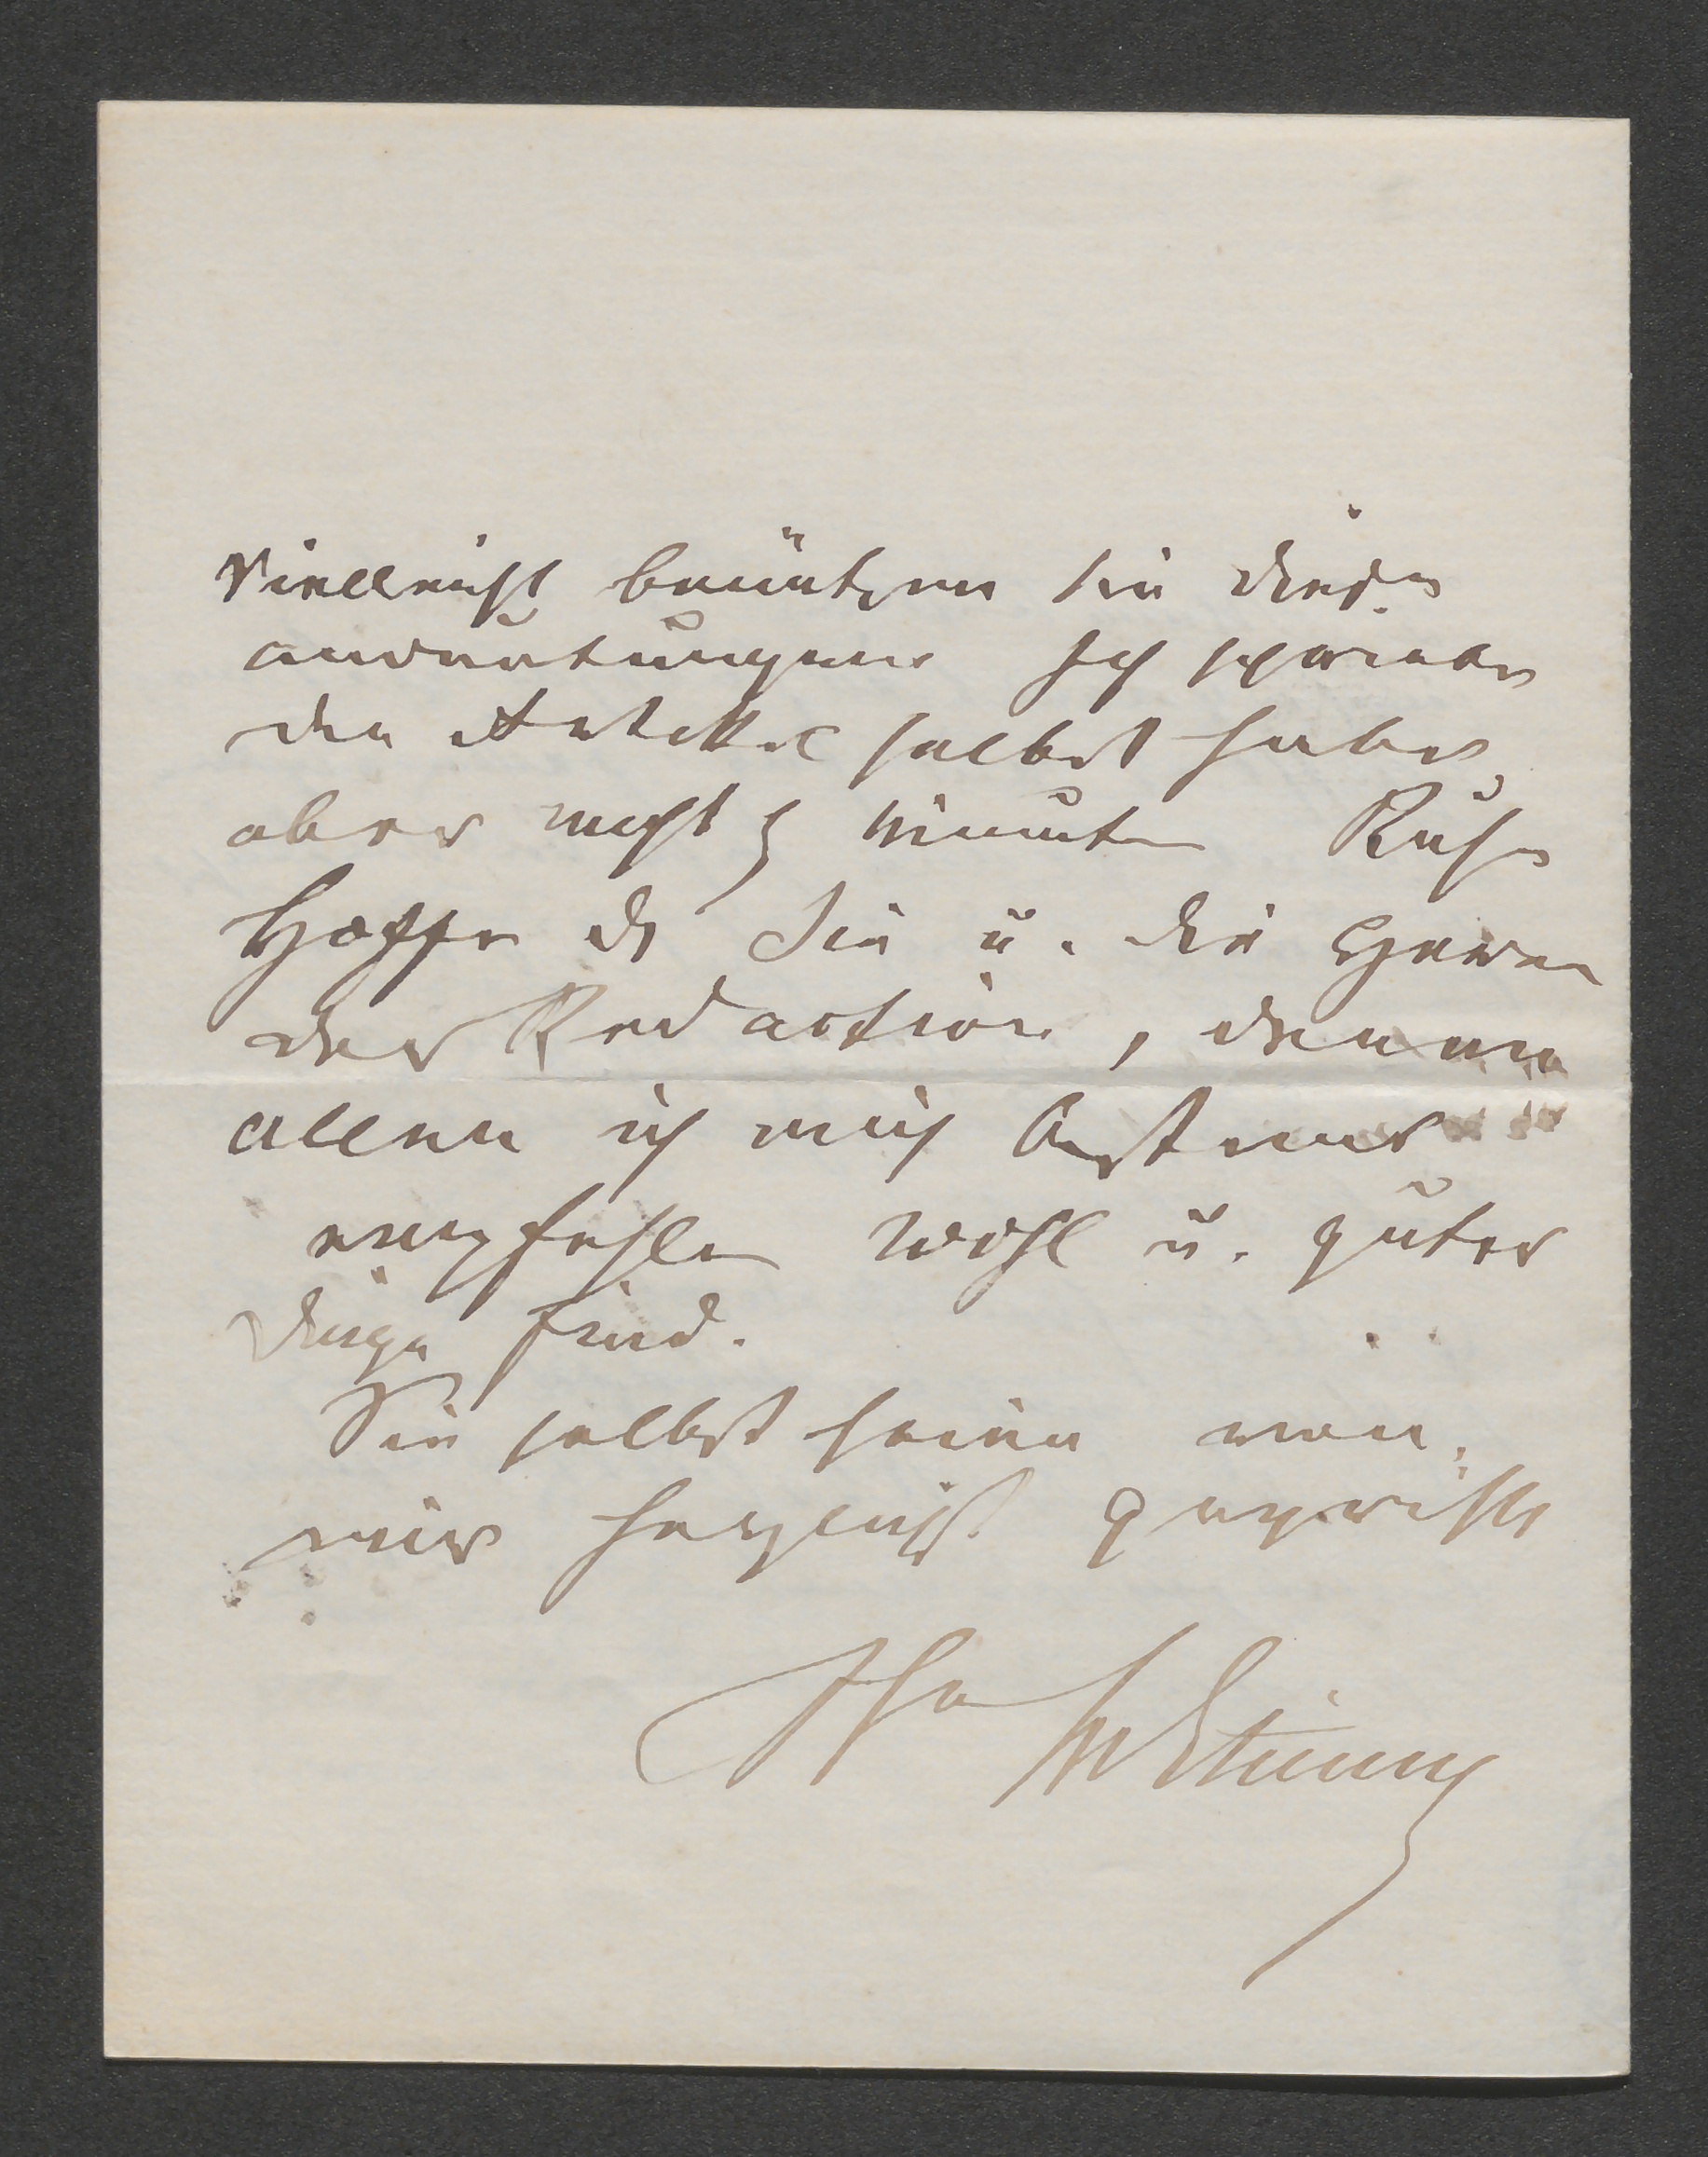 Vielleicht benützen Sie diese
Andeutungen Ich schriebe
den Artikel selbst habe
aber nicht 5 Minuten Ruhe
Hoffe ds Sie u. die Herren
der Redaction, denen
allen ich mich bestens
empfehle wohl u. guter
Dinge sind.
Sie selbst seien von
mir herzlichst gegrüßt
Ihr